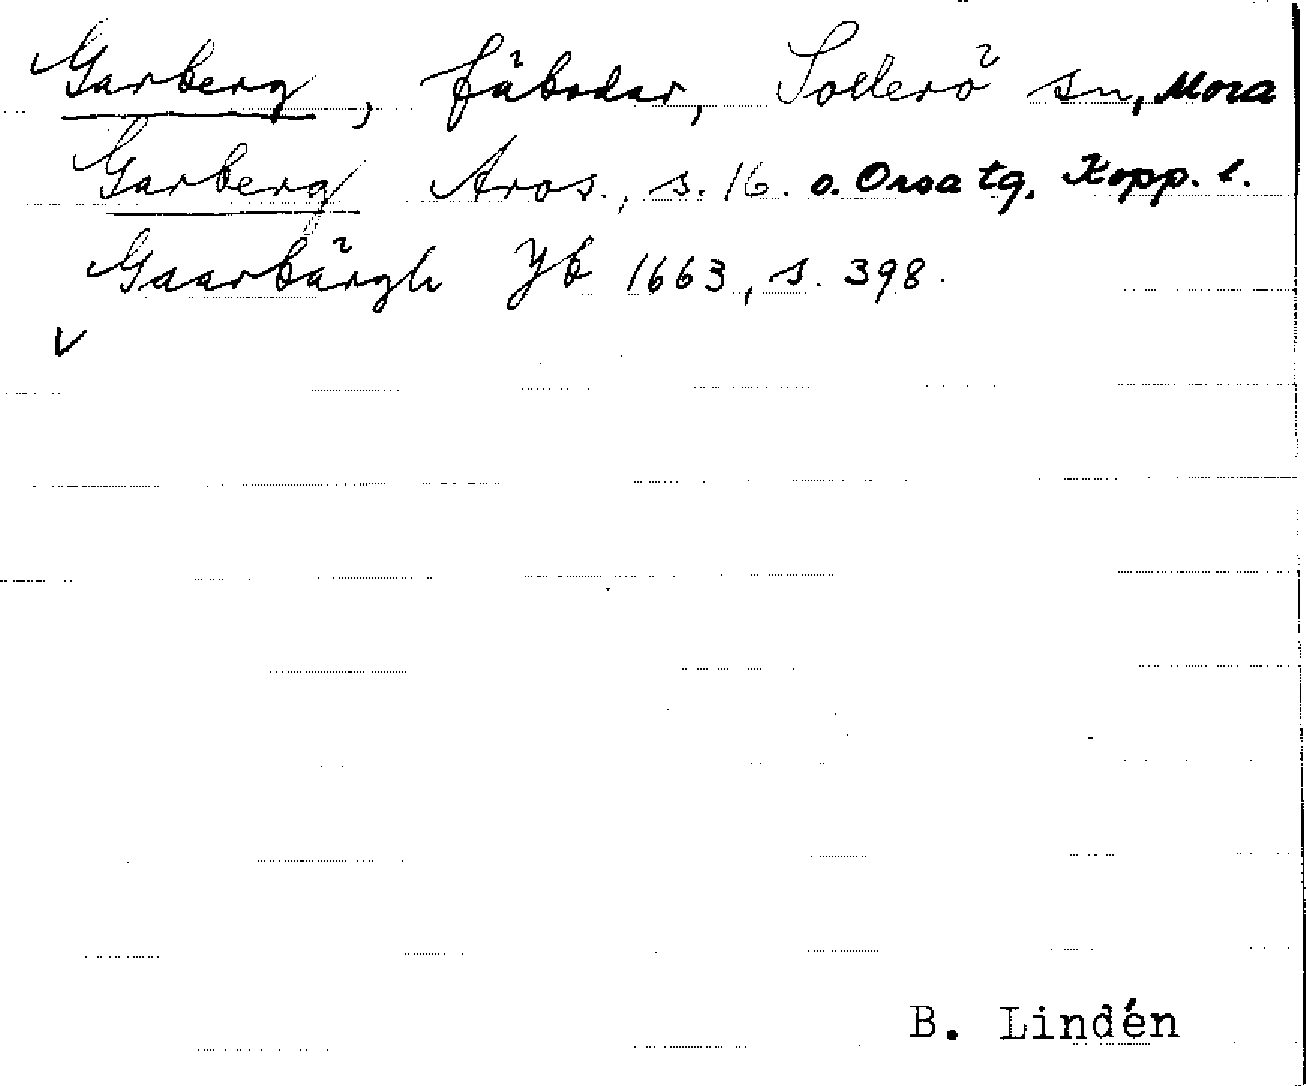 Garberg, fäbodar, Sollerö sn, Mora
Garberg Aros., s. 16. o. Orsa tg. Kopp. l.
Gaarbärgh Jb 1663, s. 398.
V
B. Lindén